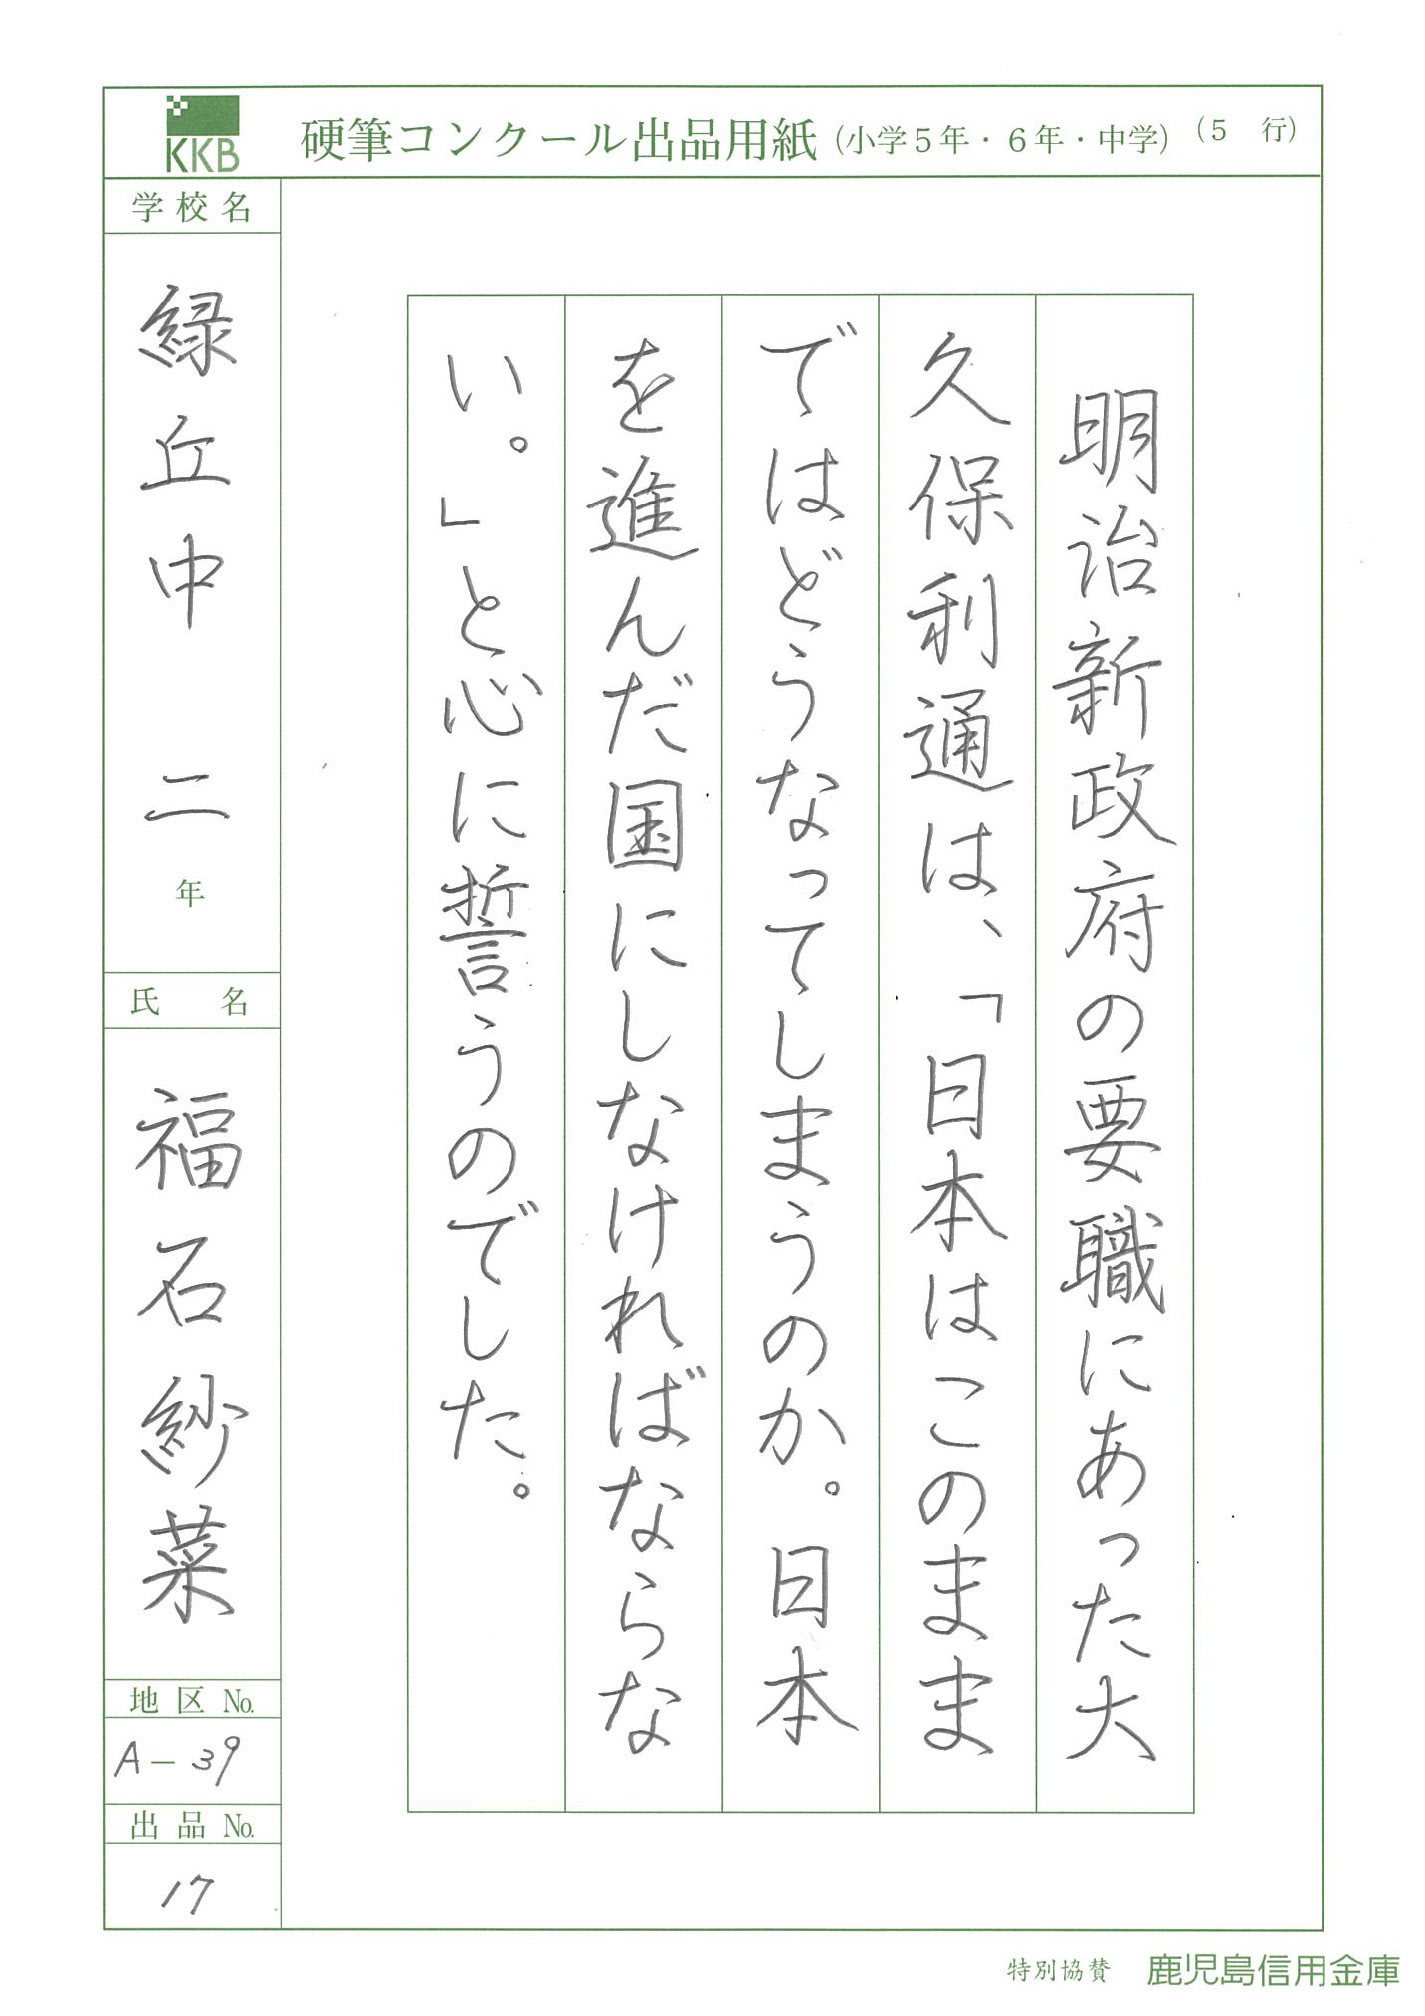 KKB
硬筆コンクール出品用紙(小学5年・6年・中学)(5 行)
明治新政府の要職にあった大
久保利通は、「日本はこのまま
ではどうなってしまうのか。日本
を進んだ国にしなければならな
い。」と心に誓うのでした。
学校名
緑丘中 二年
氏 名
福石紗菜
地区 No.
A-39
出品 No.
17
特別協賛 鹿児島信用金庫